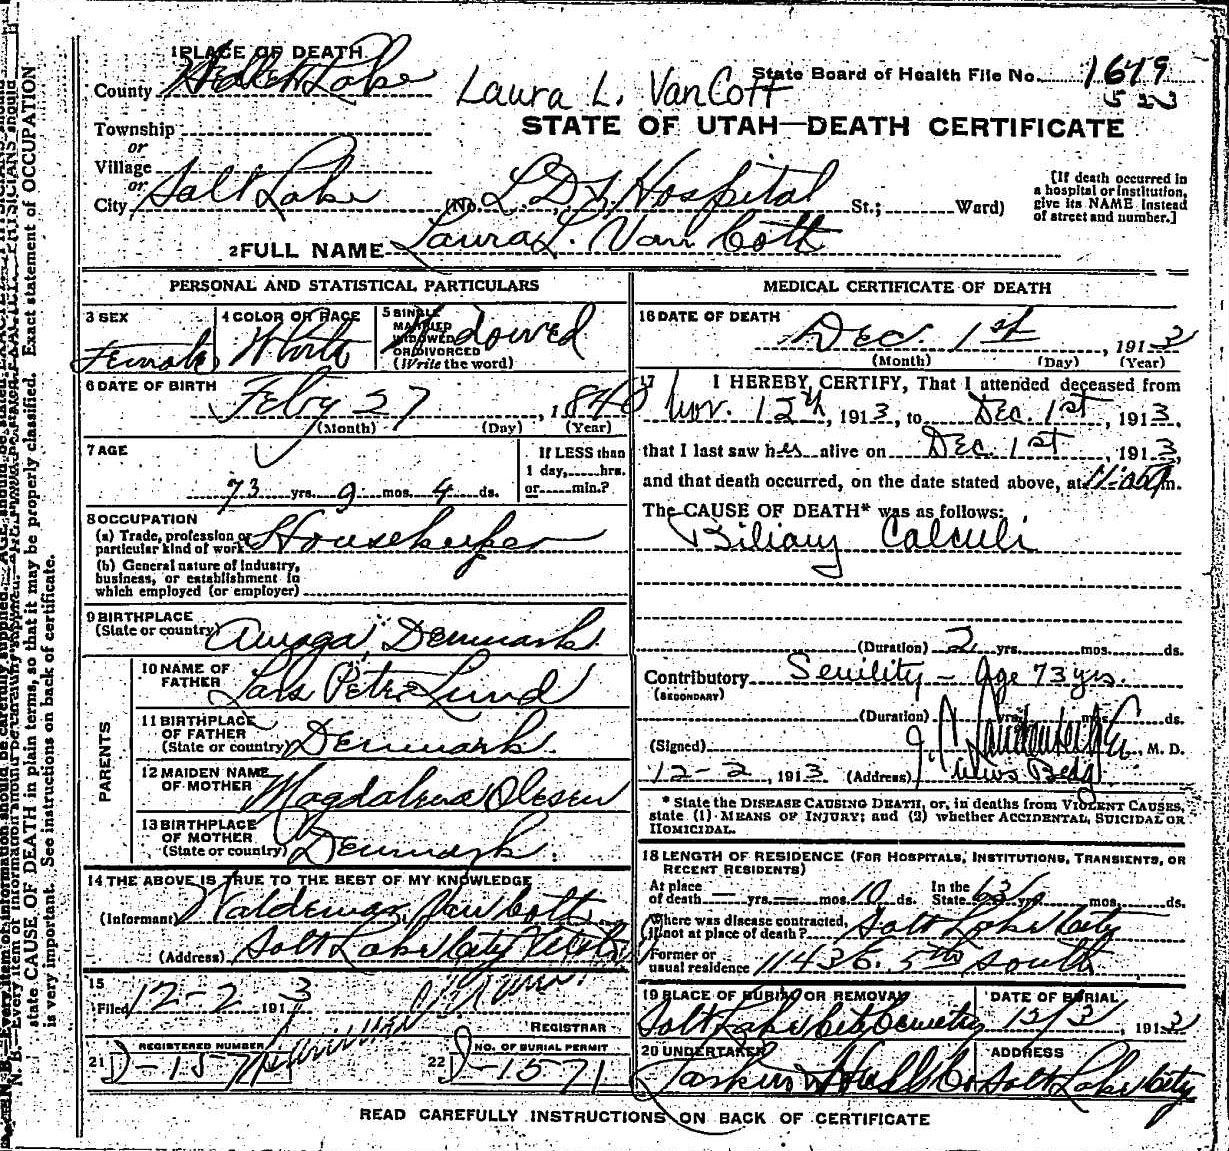 1 PLACE OF DEATH
County Salt Lake
Laura L. VanCott
State Board of Health File No. 1679
523
STATE OF UTAH—DEATH CERTIFICATE
Township
or
Village
or
City Salt Lake (No. L.D.S. Hospital St.; Ward)
[If death occurred in a hospital or institution, give its NAME instead of street and number.]
2 FULL NAME Laura L. Van Cott
PERSONAL AND STATISTICAL PARTICULARS
3 SEX
Female
4 COLOR OR RACE
White
5 SINGLE MARRIED WIDOWED OR DIVORCED
(Write the word)
Widowed
6 DATE OF BIRTH
Febry 27, 1840
(Month) (Day) (Year)
7 AGE
73 yrs. 9 mos. 4 ds.
If LESS than 1 day, hrs. or min.?
8 OCCUPATION
(a) Trade, profession or particular kind of work Housekeeper
(b) General nature of industry, business, or establishment in which employed (or employer)
9 BIRTHPLACE
(State or country) Denmark
PARENTS
10 NAME OF FATHER Lars Peter Lund
11 BIRTHPLACE OF FATHER
(State or country) Denmark
12 MAIDEN NAME OF MOTHER Magdalena Olesen
13 BIRTHPLACE OF MOTHER
(State or country) Denmark
14 THE ABOVE IS TRUE TO THE BEST OF MY KNOWLEDGE
(Informant) Waldemar Van Cott
(Address) Salt Lake City Utah
15
Filed 12-2 1913
REGISTRAR
21 REGISTERED NUMBER
D-1571
22 NO. OF BURIAL PERMIT
D-1571
MEDICAL CERTIFICATE OF DEATH
16 DATE OF DEATH
Dec. 1st, 1913
(Month) (Day) (Year)
17 I HEREBY CERTIFY, That I attended deceased from
Nov. 12th, 1913, to Dec. 1st, 1913,
that I last saw her alive on Dec. 1st, 1913,
and that death occurred, on the date stated above, at m.
The CAUSE OF DEATH* was as follows:
Biliary Calculi
(Duration) 2 yrs. mos. ds.
Contributory Senility – Age 73 yrs.
(SECONDARY)
(Duration) yrs. mos. ds.
(Signed) M. D.
12-2, 1913 (Address) News Bldg
* State the DISEASE CAUSING DEATH, or, in deaths from VIOLENT CAUSES, state (1) MEANS OF INJURY; and (2) whether ACCIDENTAL, SUICIDAL OR HOMICIDAL.
18 LENGTH OF RESIDENCE (FOR HOSPITALS, INSTITUTIONS, TRANSIENTS, OR RECENT RESIDENTS)
At place of death yrs. mos. 10 ds. In the State yrs. mos. ds.
Where was disease contracted, if not at place of death? Salt Lake City
Former or usual residence 1143 E. 5th South
19 PLACE OF BURIAL OR REMOVAL
Salt Lake City Cemetery
DATE OF BURIAL
12/3, 1913
20 UNDERTAKER
ADDRESS
Salt Lake City
READ CAREFULLY INSTRUCTIONS ON BACK OF CERTIFICATE
state CAUSE OF DEATH in plain terms, so that it may be properly classified. Exact statement of OCCUPATION
is very important. See instructions on back of certificate.